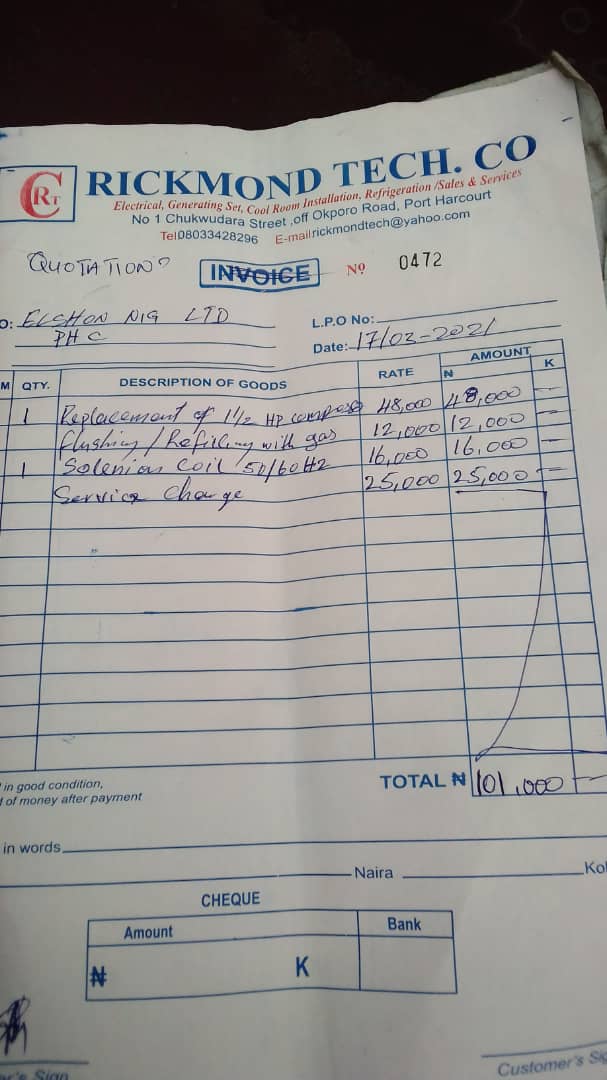 CRT RICKMOND TECH. CO
Electrical, Generating Set, Cool Room Installation, Refrigeration /Sales & Services
No 1 Chukwudara Street ,off Okporo Road, Port Harcourt
Tel08033428296 E-mailrickmondtech@yahoo.com
QUOTATION
INVOICE Nº 0472
O: ELSHON NIG LTD
PHC
L.P.O No:
Date: 17/03-2021
M QTY. DESCRIPTION OF GOODS RATE AMOUNT
N K
1 Replacement of 1½ HP compress 48,000 48,000 —
Flushing / Refilling with gas 12,000 12,000 —
1 Solenion Coil 50/60Hz 16,000 16,000 —
Service Charge 25,000 25,000 —
in good condition,
of money after payment
TOTAL ₦ 101,000 —
in words
Naira Ko
CHEQUE
Amount Bank
₦ K
er's Sign
Customer's Sig